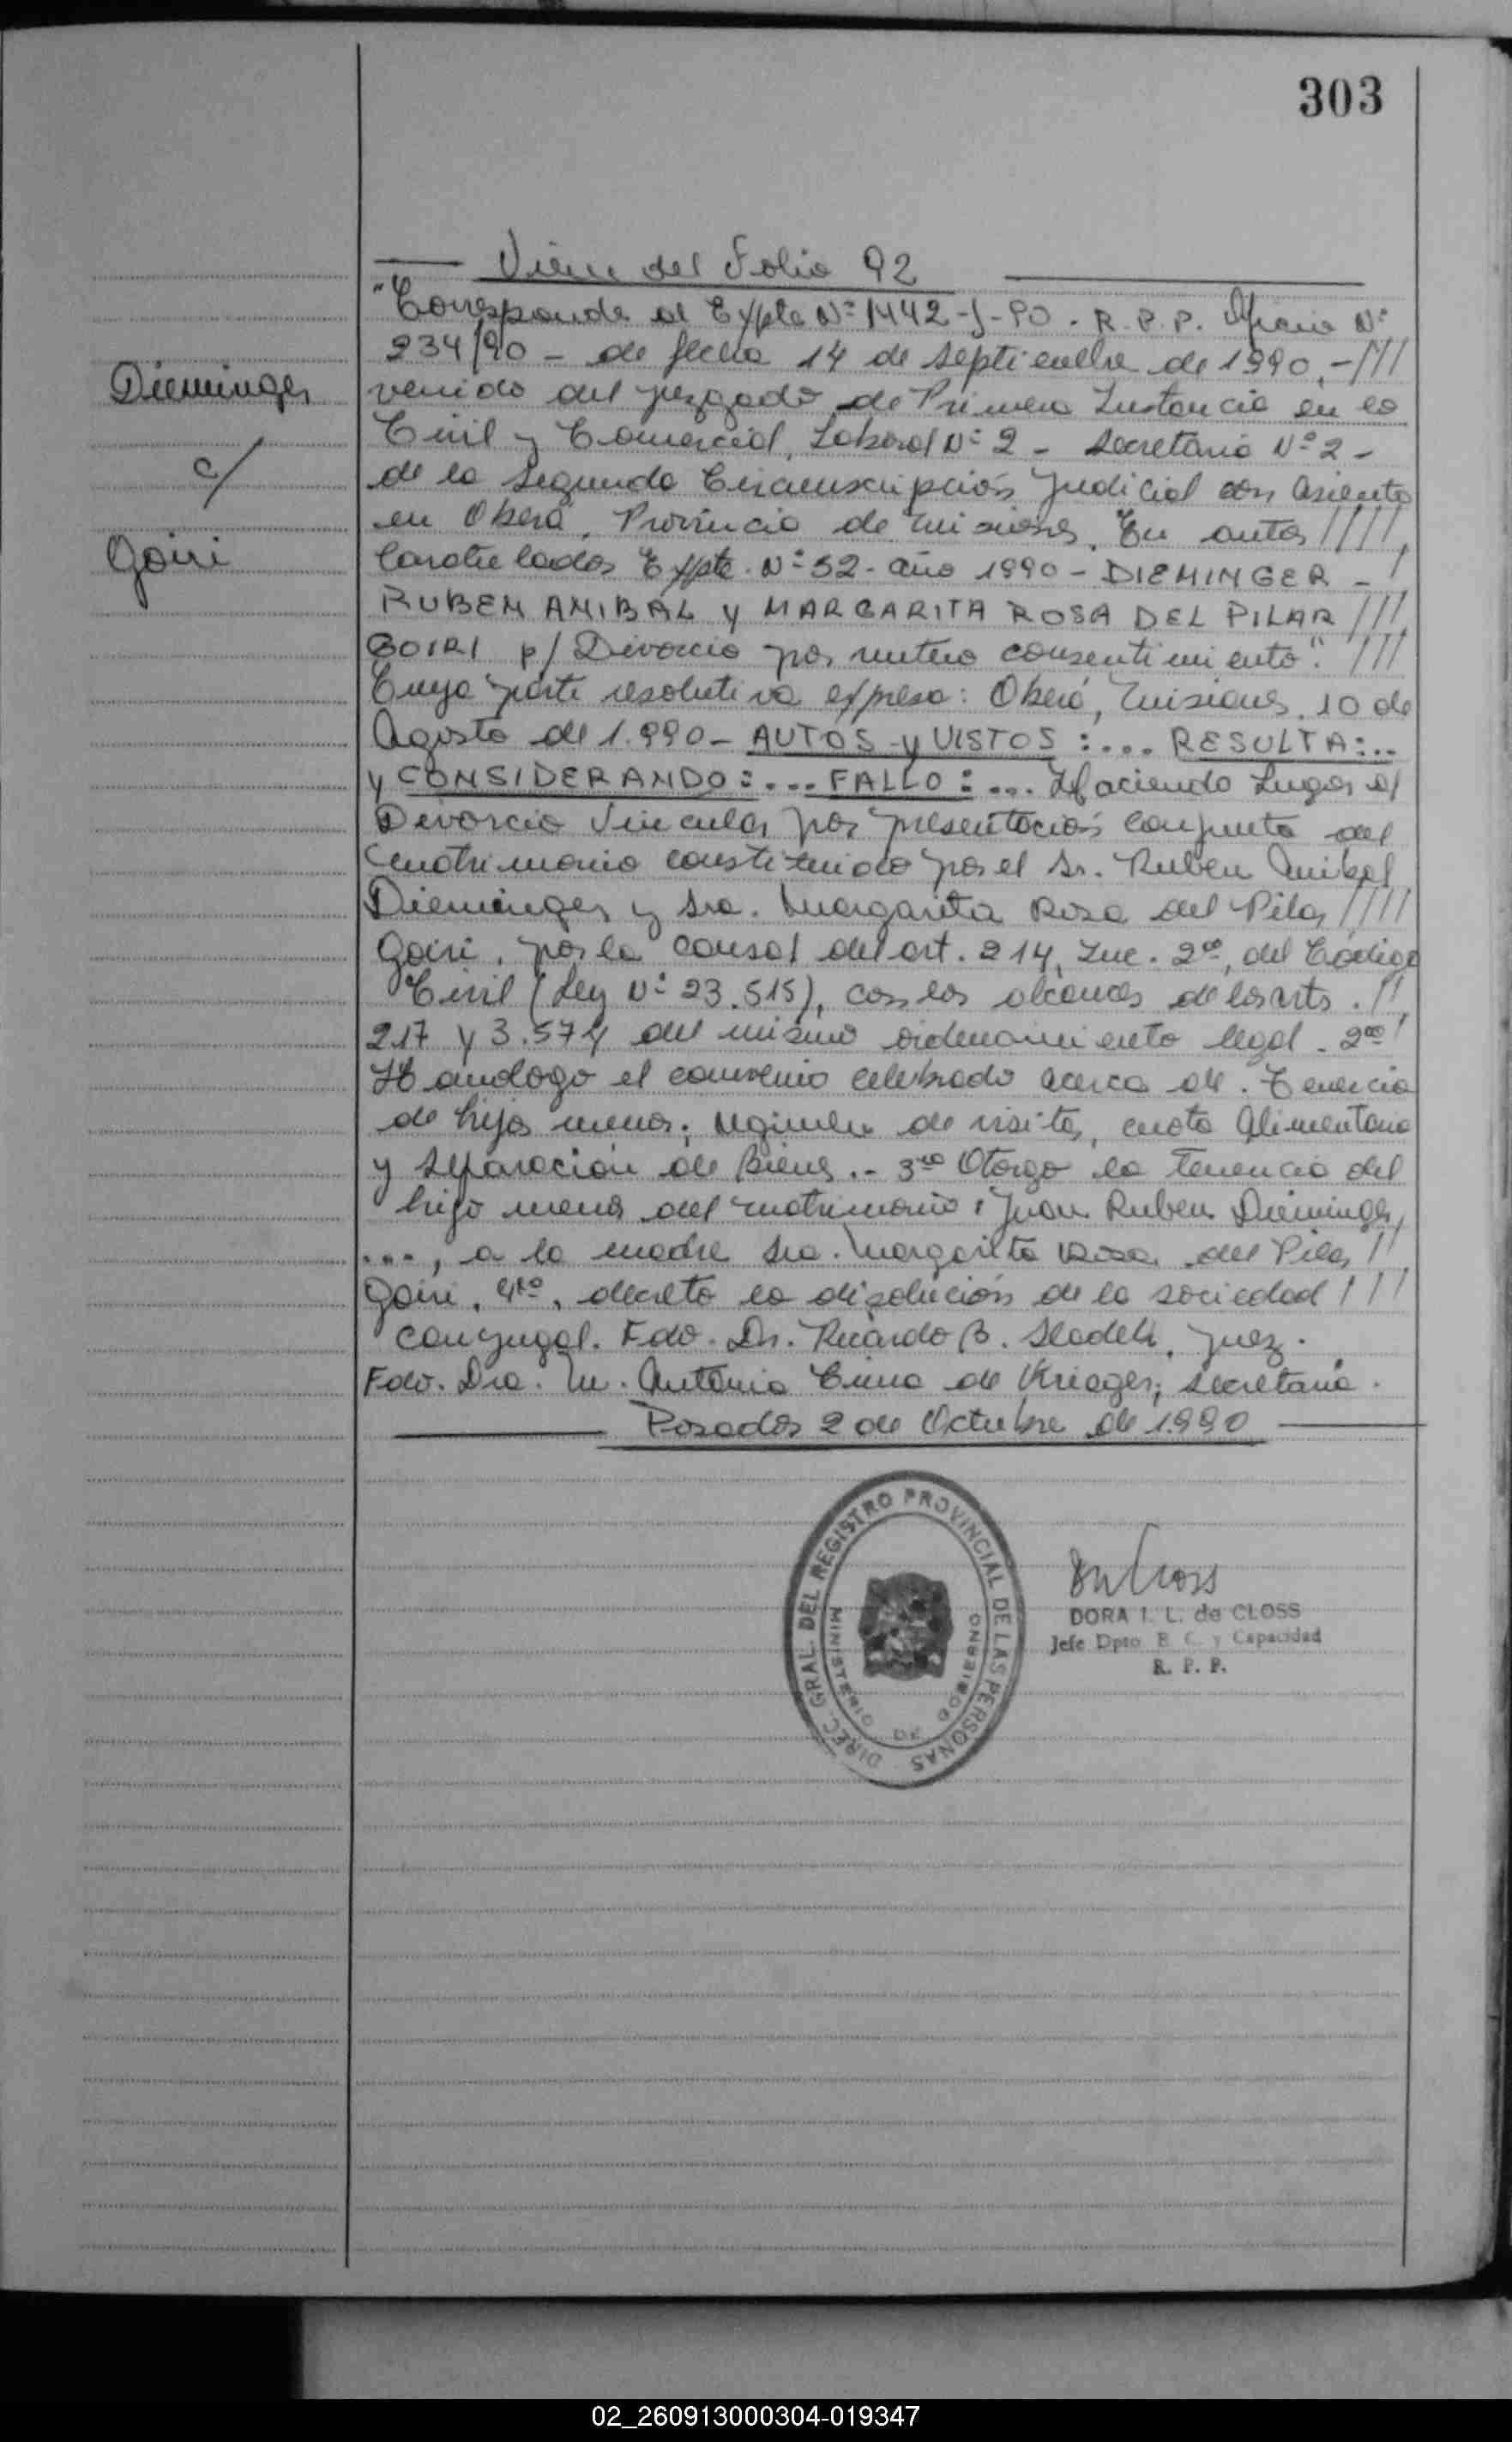 303
Viene del Folio 92
"Corresponde al Expte Nº 1442-J-90. R.P.P. Oficio Nº
234/90 - de fecha 14 de septiembre de 1990.-////
Dieminger
venido del juzgado de Primera Instancia en lo
Civil y Comercial, Laboral Nº 2 - Secretaria Nº 2 -
c/
de la Segunda Circunscripción Judicial con asiento
en Oberá, Provincia de Misiones. En autos /////,
Goiri
Caratulados Expte. Nº 52 - año 1990 - DIEMINGER - /
RUBEN ANIBAL y MARGARITA ROSA DEL PILAR ///
GOIRI p/ Divorcio por mutuo consentimiento". ///
Cuya parte resolutiva expresa: Oberá, Misiones, 10 de
Agosto de 1.990 - AUTOS y VISTOS :... RESULTA:..
y CONSIDERANDO:... FALLO:... Haciendo Lugar al
Divorcio Vincular por presentación conjunta del
matrimonio constituido por el Sr. Ruben Anibal
Dieminger y Sra. Margarita Rosa del Pilar ////
Goiri, por la causal del art. 214, Inc. 2do, del Código
Civil (Ley Nº 23.515), con los alcances de los arts. //,
217 y 3.574 del mismo ordenamiento legal - 2do /
Homologo el convenio celebrado acerca de: Tenencia
de hijo menor; regimen de visitas, cuota alimentaria
y Separación de Bienes.- 3ro Otorgo la tenencia del
hijo menor del matrimonio: Juan Ruben Dieminger,
..., a la madre Sra. Margarita Rosa del Pilar //
Goiri, 4to, decreto la disolución de la sociedad ///
conyugal. Fdo. Dr. Ricardo B. juez.
Fdo. Dra. M. Antonia de Krieger, Secretaria.
Posadas 2 de Octubre de 1.990
DIREC. GRAL. DEL REGISTRO PROVINCIAL DE LAS PERSONAS
MINISTERIO DE GOBIERNO
DORA I. L. de CLOSS
Jefe Dpto E. C. y Capacidad
R. P. P.
02_260913000304-019347